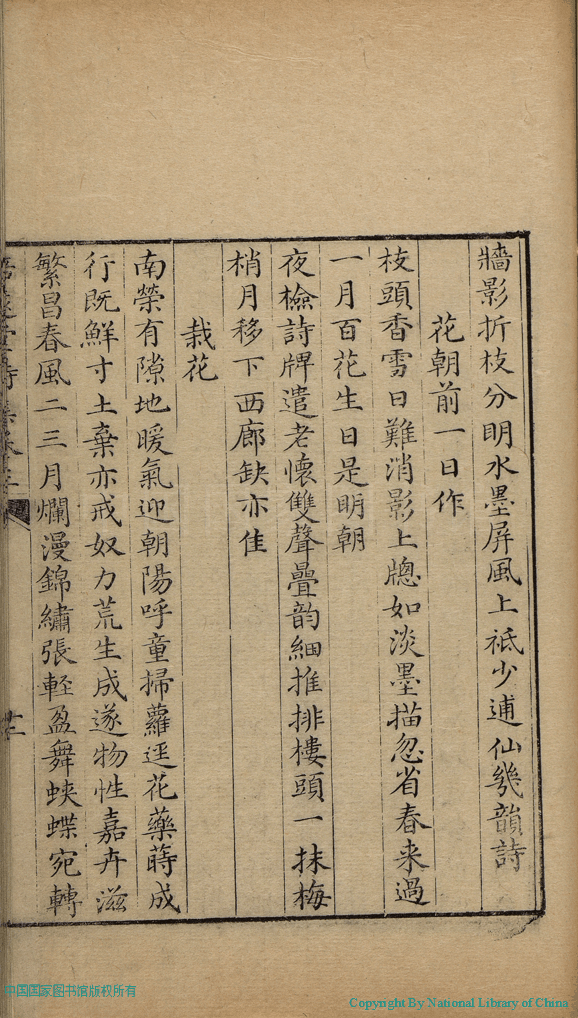 牆影折枝分明水墨屏風上祇少逋仙幾韻詩
花朝前一日作
枝頭香雪日難消影上牕如淡墨描忽省春来過
一月百花生日是明朝
夜檢詩牌遣老懷雙聲疊韵細推排樓頭一抹梅
梢月移下西廊缺亦佳
栽花
南榮有隙地暖氣迎朝陽呼童掃蘿逕花藥蒔成
行既鮮寸土棄亦戒奴力荒生成遂物性嘉卉滋
繁昌春風二三月爛漫錦繡張軽盈舞蛺蝶宛轉
中国国家图书馆版权所有
Copyright By National Library of China